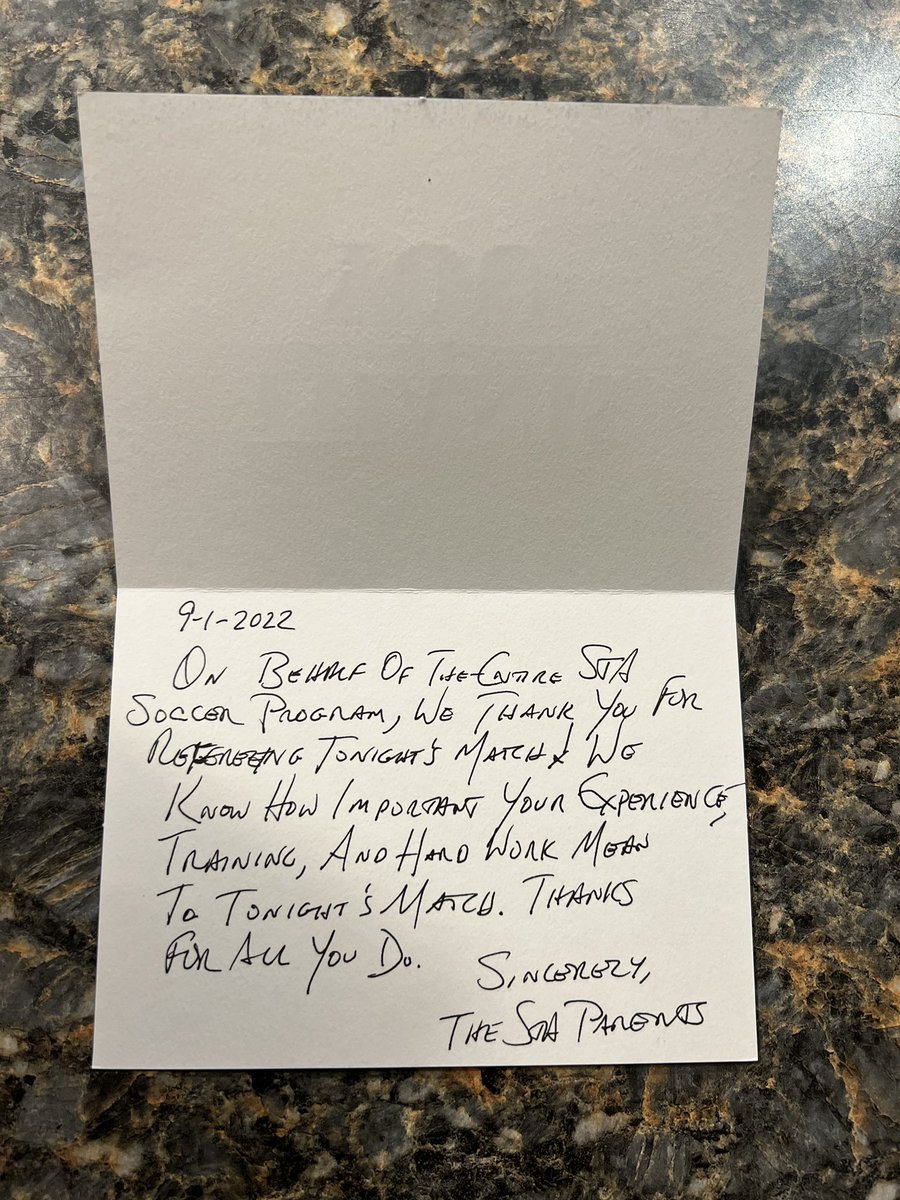 9-1-2022
On Behalf Of The Entire STA
Soccer Program, We Thank You For
Refereeing Tonight's Match! We
Know How Important Your Experience,
Training, And Hard Work Mean
To Tonight's Match. Thanks
For All You Do.
Sincerely,
The STA Parents